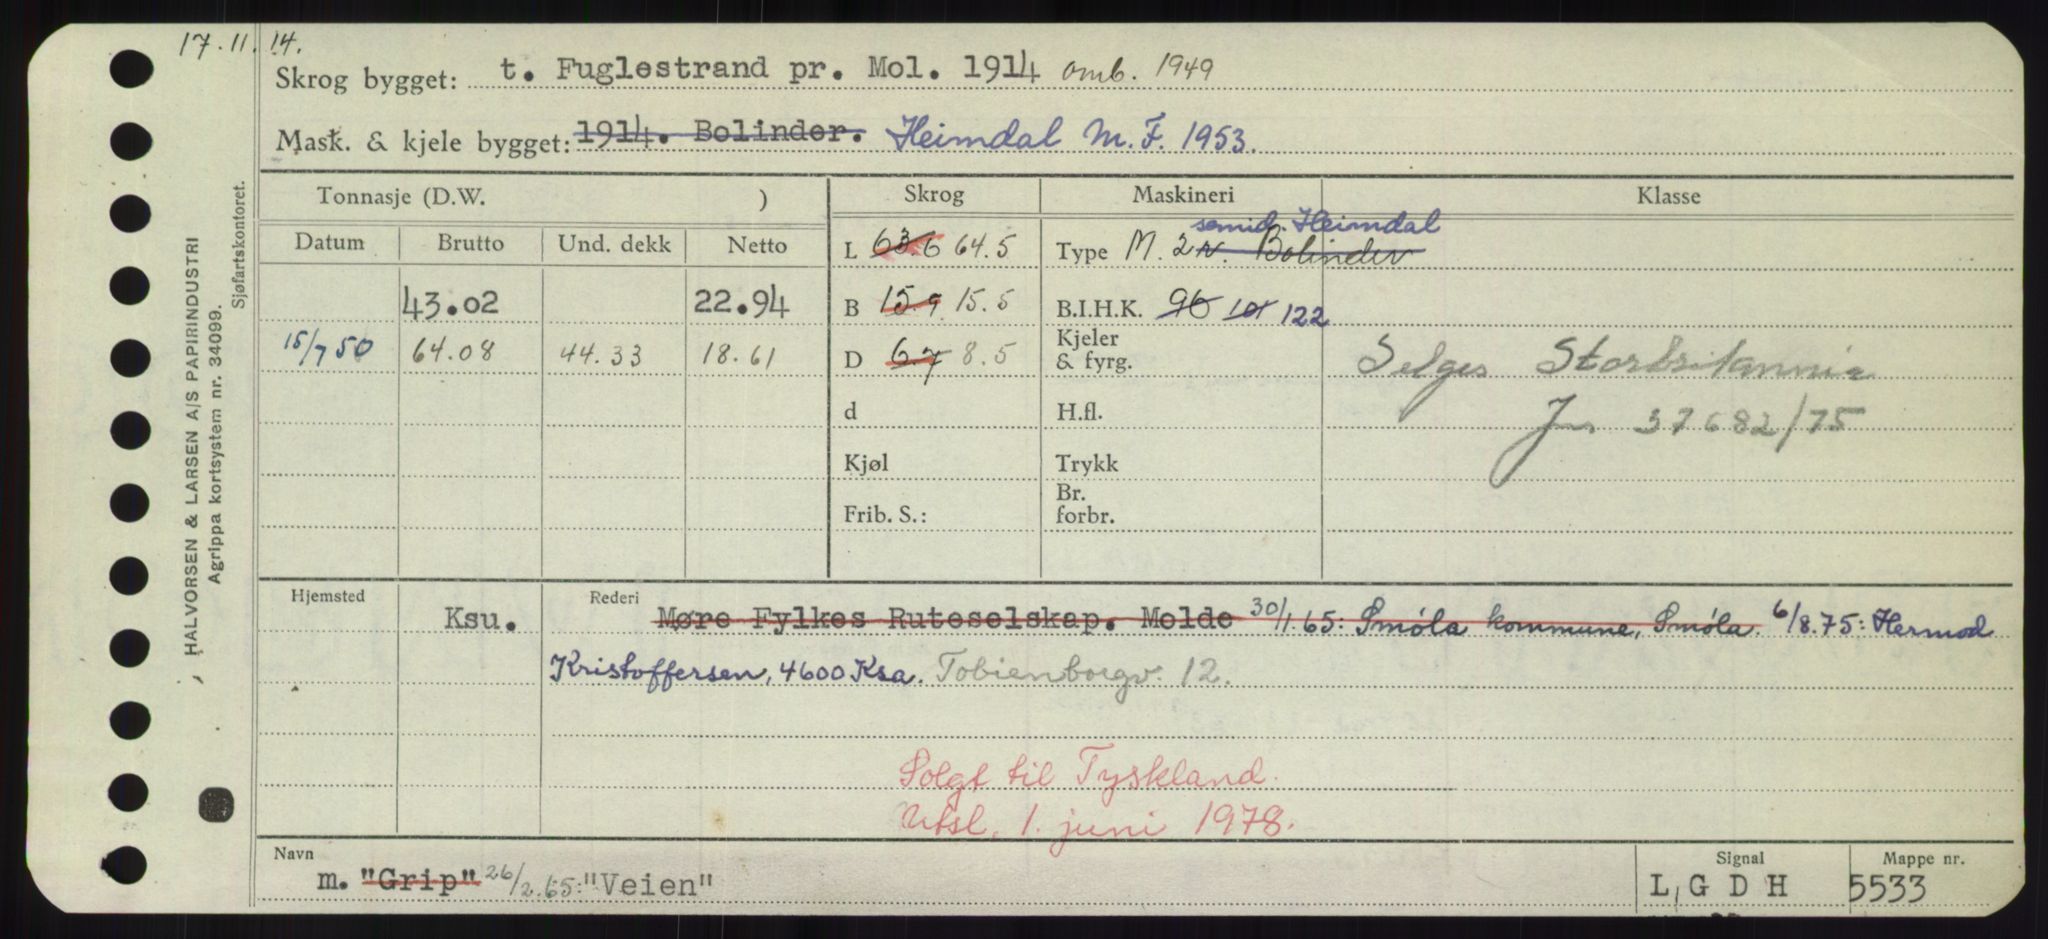 17.11.14.
Skrog bygget: t. Fuglestrand pr. Mol. 1914 omb. 1949
Mask. & kjele bygget: 1914. Bolinder. Heimdal M.F. 1953.
Tonnasje (D.W. )
Skrog
Maskineri
Klasse
Datum Brutto Und. dekk Netto
L 63.6 64.5
semid. Heimdal
Type M. 2 Bolinder
43.02 22.94
B 15.9 15.5
B.I.H.K. 96 101 122
15/7 50 64.08 44.33 18.61
D 6.7 8.5
Kjeler
& fyrg.
Selges Storbritannia
d
H.fl.
Jnr 37682/75
Kjøl
Trykk
Frib. S.:
Br.
forbr.
Hjemsted
Ksu.
Rederi
Møre Fylkes Ruteselskap. Molde 30/1.65: Smøla kommune, Smøla. 6/8.75: Hermod
Kristoffersen, 4600 Ksa. Tobienborgv. 12.
Solgt til Tyskland.
Utsl. 1. juni 1978.
Navn
m. "Grip" 26/2.65: "Veien"
Signal
L G D H
Mappe nr.
5533
HALVORSEN & LARSEN A/S PAPIRINDUSTRI
Agrippa kortsystem nr. 34099.
Sjøfartskontoret.